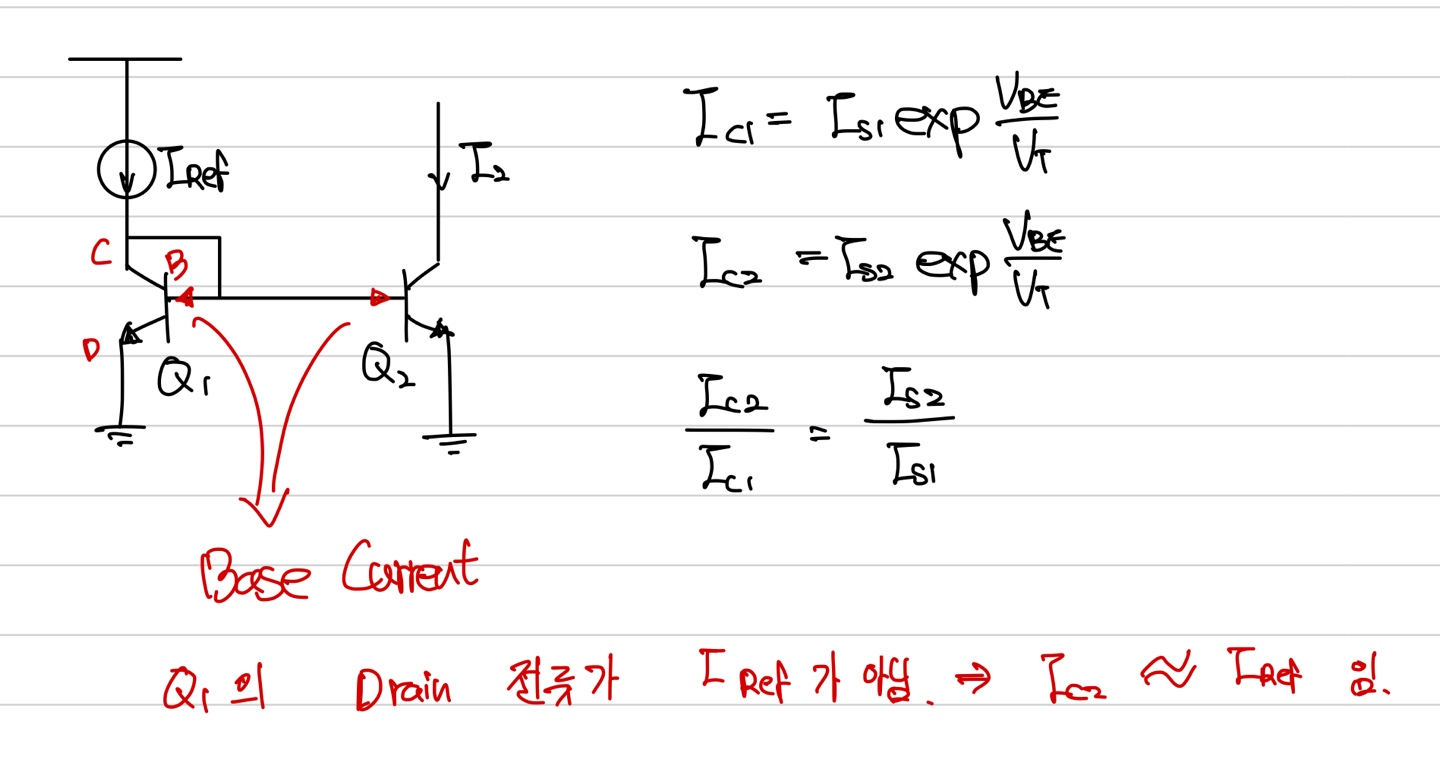 I_Ref
I_2
C
B
D
Q_1
Q_2
I_C1 = I_S1 exp V_BE / V_T
I_C2 = I_S2 exp V_BE / V_T
I_C2 / I_C1 = I_S2 / I_S1
Base Current
Q_1의 Drain 전류가 I_Ref가 아님. ⇒ I_C2 ≈ I_Ref 임.